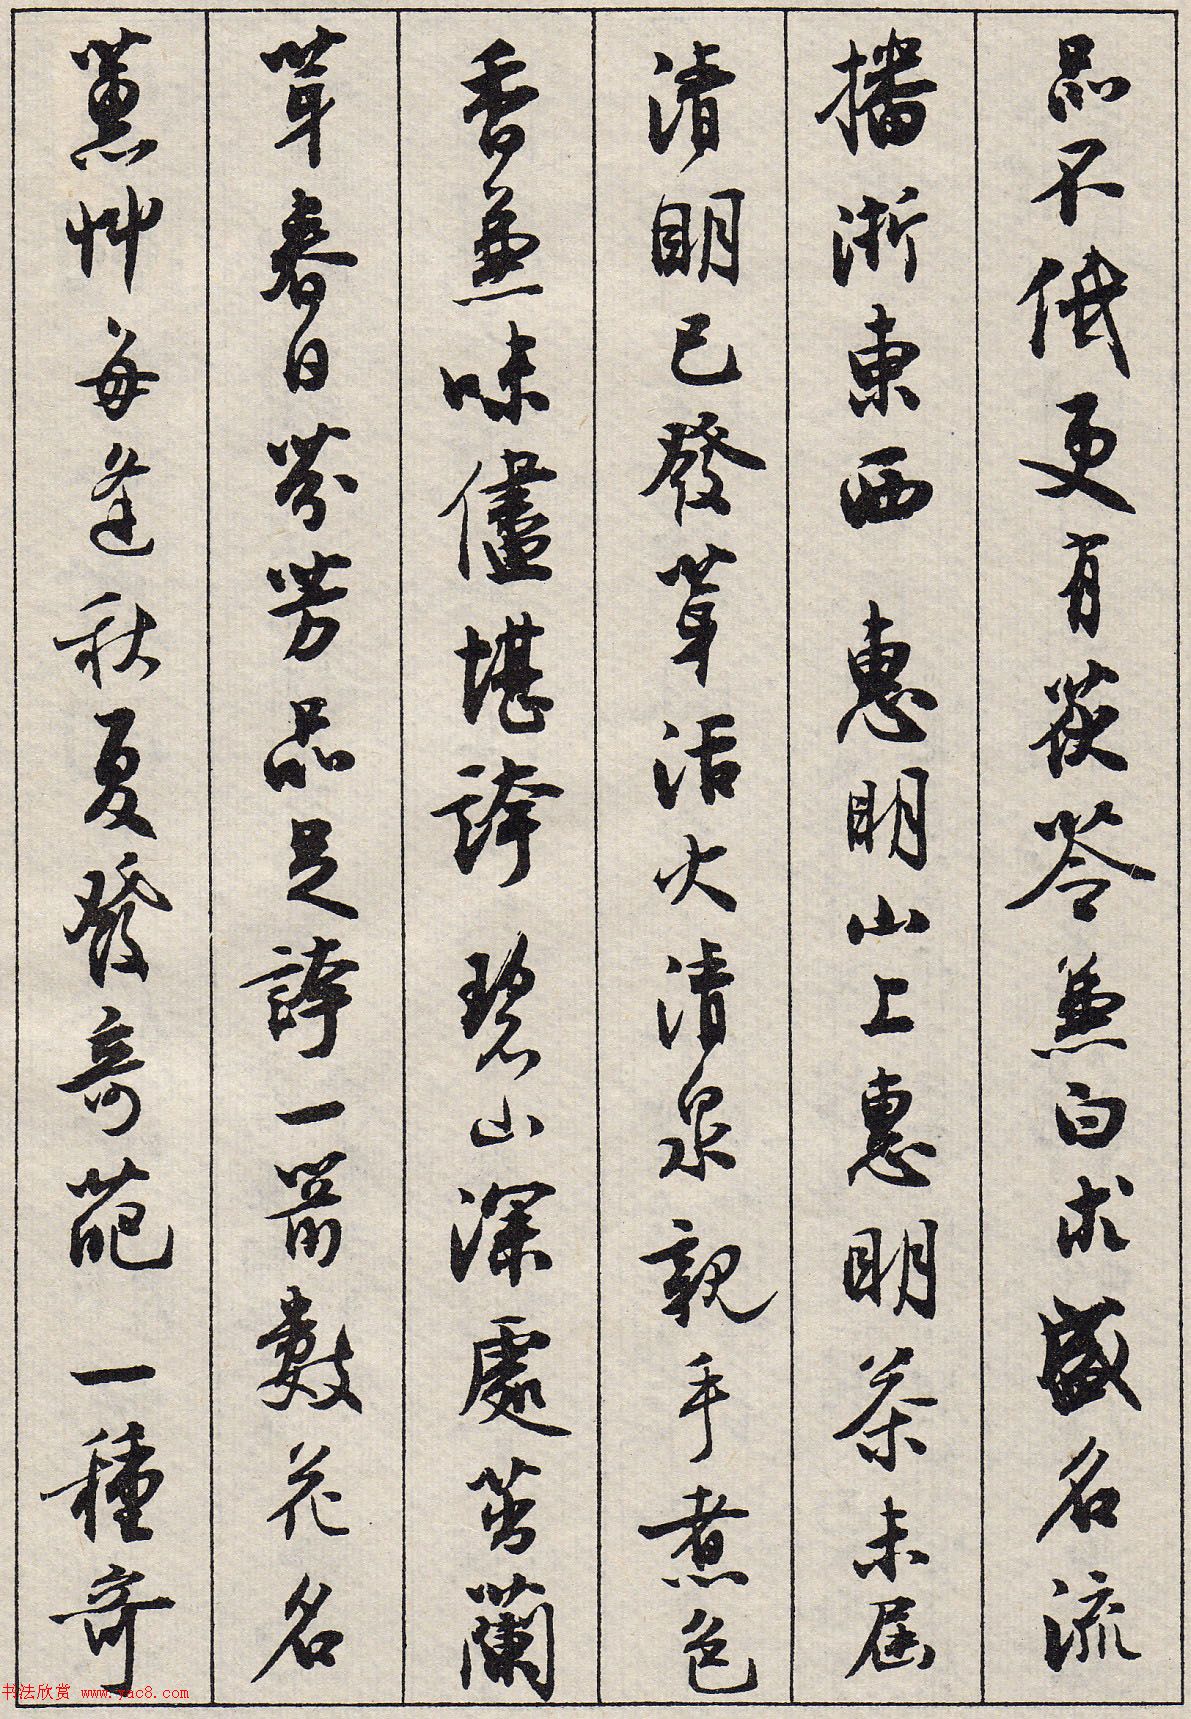 品不低更有茯苓兼白朮盛名流
播浙東西 惠明山上惠明茶未屆
清明已發芽活火清泉親手煮色
香兼味儘堪誇 碧山深處茁蘭
芽春日芬芳品足誇一箭數花名
蕙艸每逢秋夏發奇葩 一種奇
书法欣赏 www.yac8.com